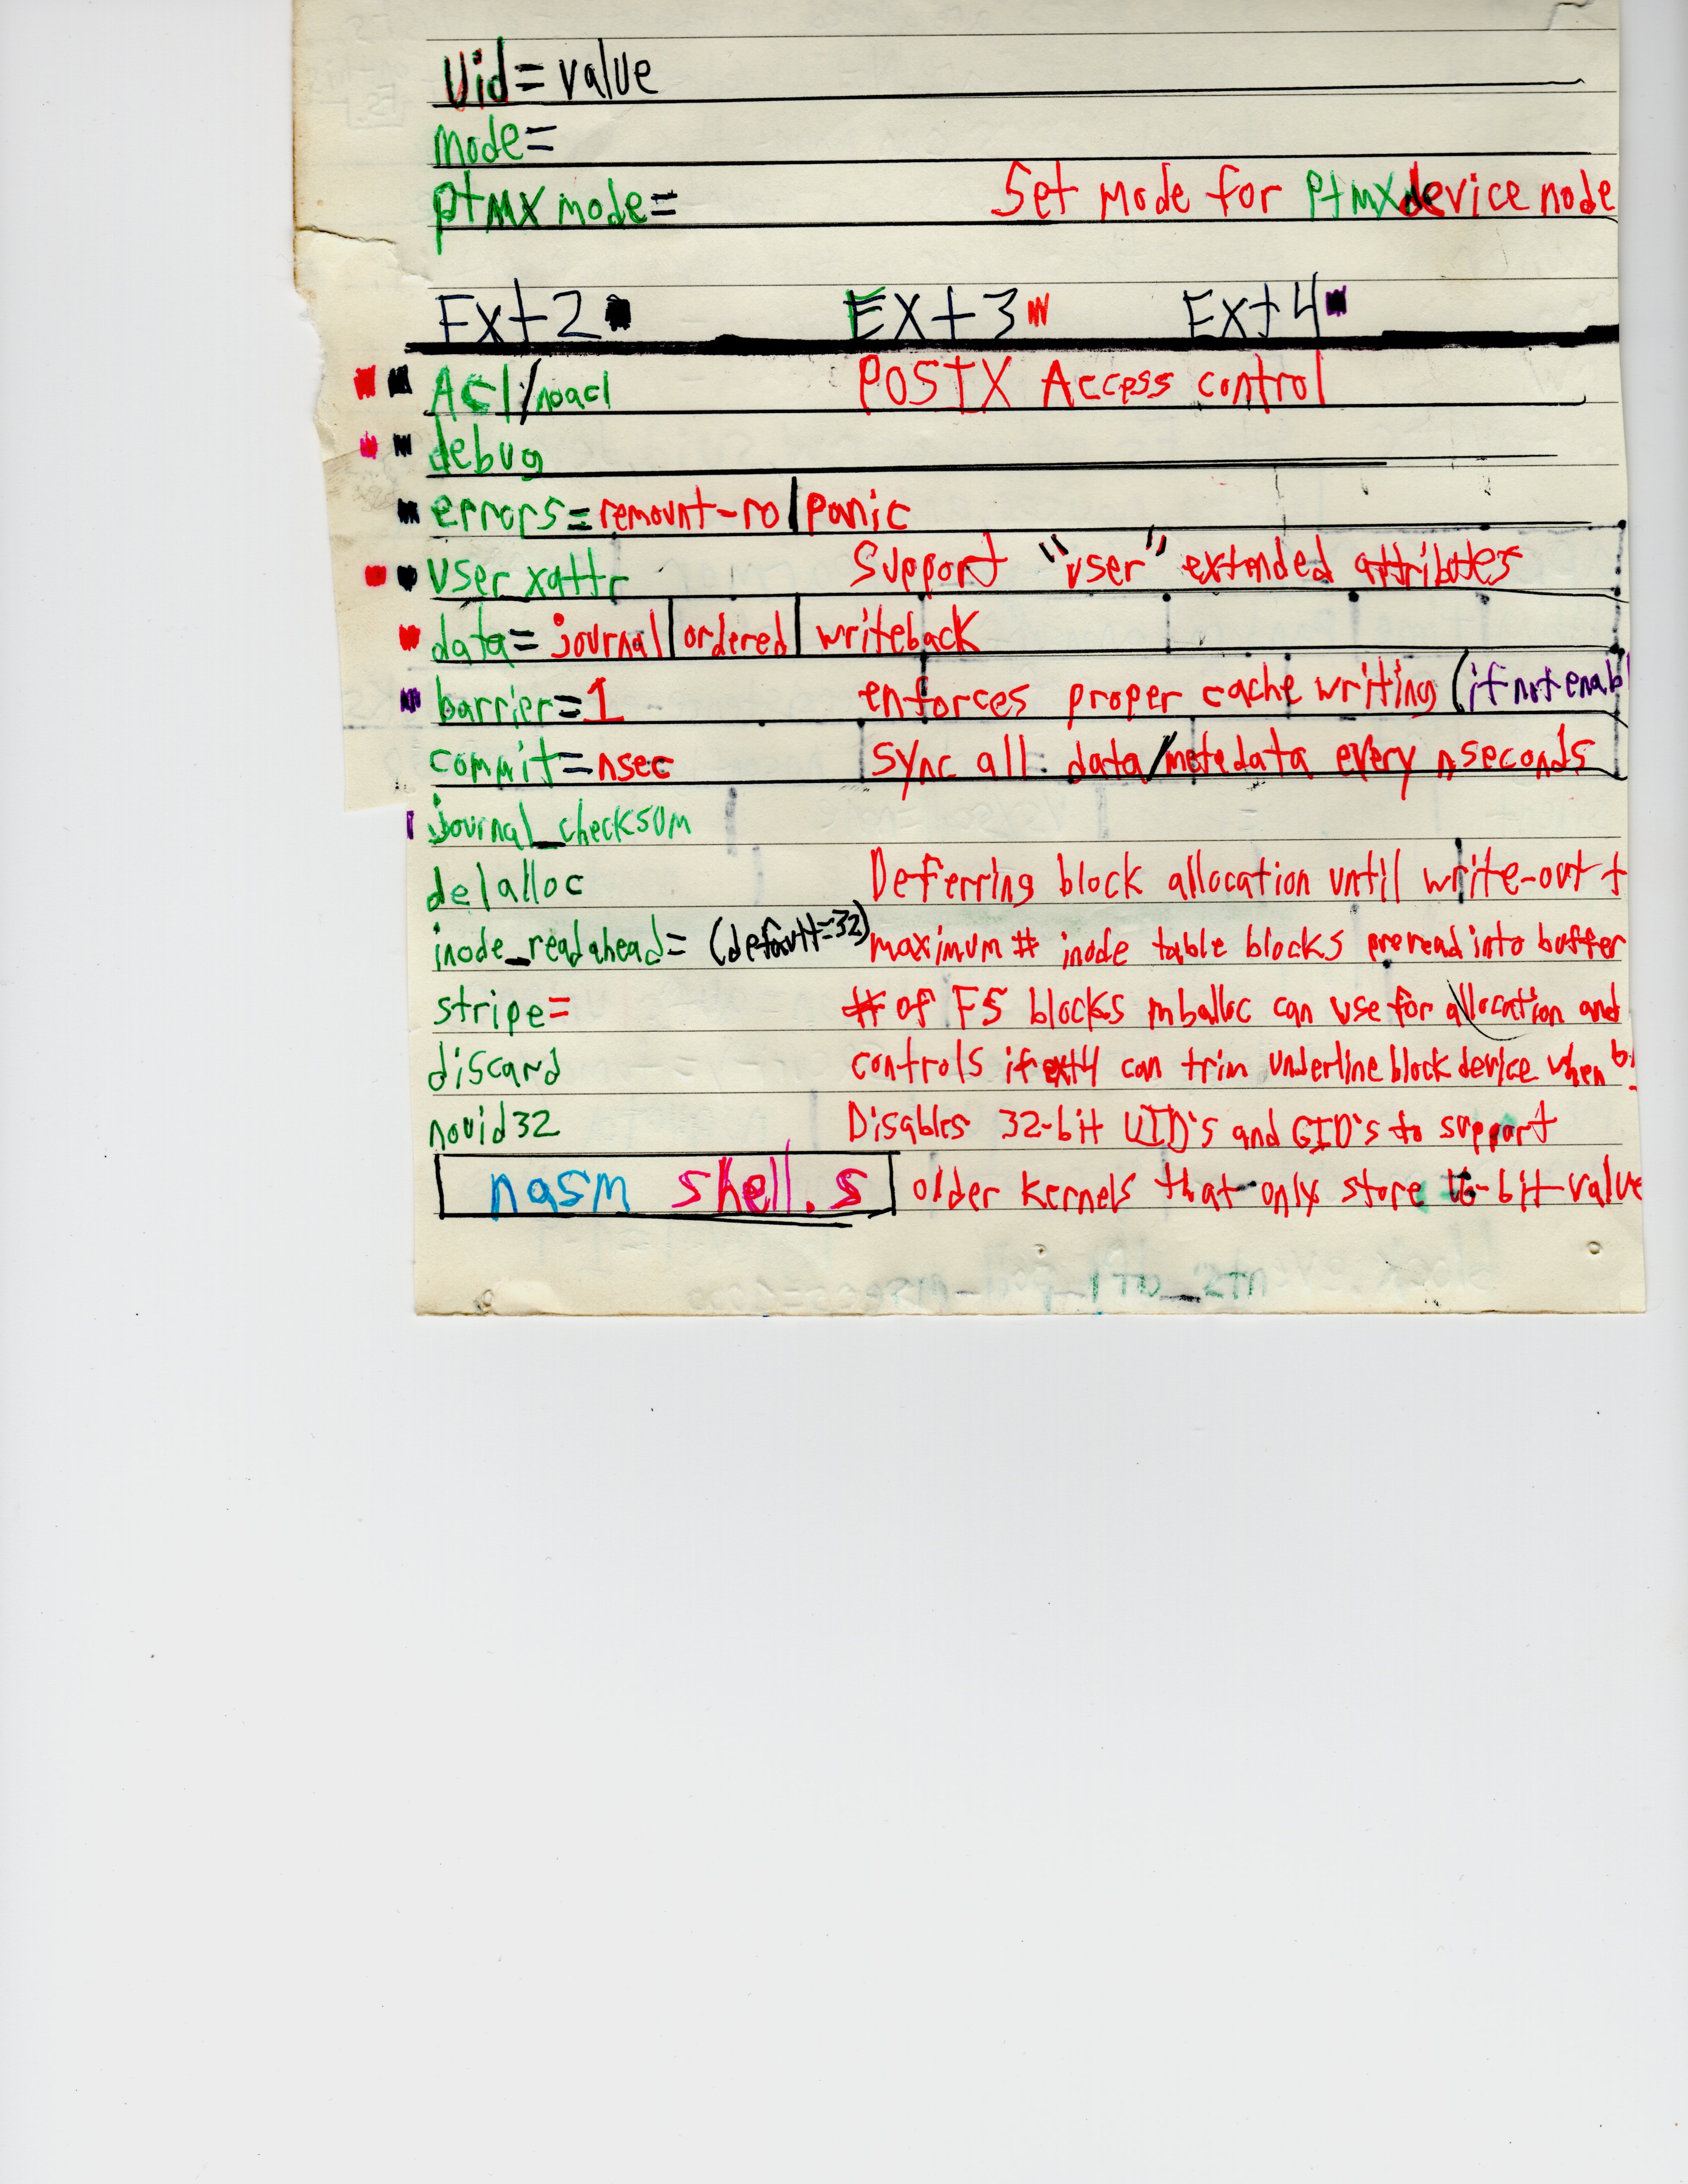 Uid = value
mode=
ptmx mode= Set mode for ptmx device node
Ext2 Ext3 Ext4
Acl/noacl POSIX Access control
debug
errors=remount-ro|panic
user_xattr Support "user" extended attributes
data=journal|ordered|writeback
barrier=1 enforces proper cache writing (if not enabl
commit=nsec sync all data/metedata every nseconds
journal_checksum
delalloc Deferring block allocation until write-out t
inode_readahead= (default=32) maximum # inode table blocks preread into buffer
stripe= # of FS blocks mballoc can use for allocation and
discard controls if ext4 can trim underline block device when
nouid32 Disables 32-bit UID's and GID's to support
nasm shell.s older kernels that only store 16-bit value